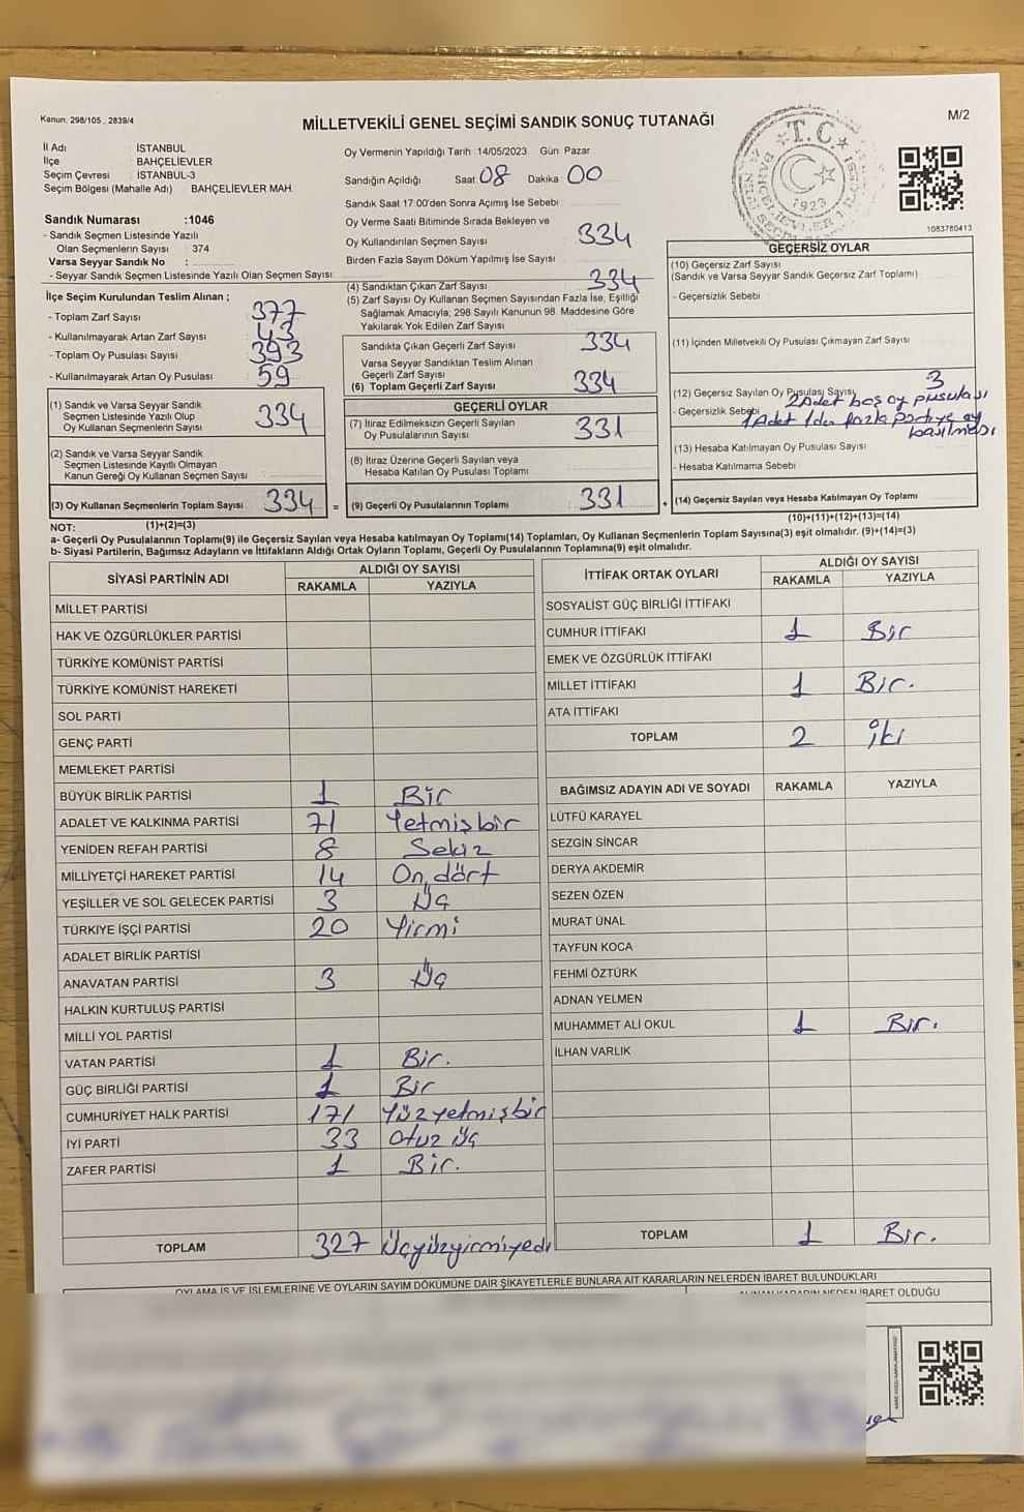 Kanun: 298/105 , 2839/4
MİLLETVEKİLİ GENEL SEÇİMİ SANDIK SONUÇ TUTANAĞI
M/2
İl Adı İSTANBUL
İlçe BAHÇELİEVLER
Seçim Çevresi İSTANBUL-3
Seçim Bölgesi (Mahalle Adı) BAHÇELİEVLER MAH.
Sandık Numarası :1046
- Sandık Seçmen Listesinde Yazılı
Olan Seçmenlerin Sayısı 374
Varsa Seyyar Sandık No :
- Seyyar Sandık Seçmen Listesinde Yazılı Olan Seçmen Sayısı
Oy Vermenin Yapıldığı Tarih :14/05/2023 Gün: Pazar
Sandığın Açıldığı Saat 08 Dakika 00
Sandık Saat 17:00'den Sonra Açımış İse Sebebi
Oy Verme Saati Bitiminde Sırada Bekleyen ve
Oy Kullandırılan Seçmen Sayısı 334
Birden Fazla Sayım Döküm Yapılmış İse Sayısı
T.C.
1923
1083780413
İlçe Seçim Kurulundan Teslim Alınan ;
- Toplam Zarf Sayısı 377
- Kullanılmayarak Artan Zarf Sayısı 43
- Toplam Oy Pusulası Sayısı 393
- Kullanılmayarak Artan Oy Pusulası 59
(1) Sandık ve Varsa Seyyar Sandık
Seçmen Listesinde Yazılı Olup
Oy Kullanan Seçmenlerin Sayısı 334
(2) Sandık ve Varsa Seyyar Sandık
Seçmen Listesinde Kayıtlı Olmayan
Kanun Gereği Oy Kullanan Seçmen Sayısı
(3) Oy Kullanan Seçmenlerin Toplam Sayısı 334 =
(1)+(2)=(3)
(4) Sandıktan Çıkan Zarf Sayısı 334
(5) Zarf Sayısı Oy Kullanan Seçmen Sayısından Fazla İse, Eşitliği
Sağlamak Amacıyla, 298 Sayılı Kanunun 98. Maddesine Göre
Yakılarak Yok Edilen Zarf Sayısı
Sandıkta Çıkan Geçerli Zarf Sayısı 334
Varsa Seyyar Sandıktan Teslim Alınan
Geçerli Zarf Sayısı
(6) Toplam Geçerli Zarf Sayısı 334
GEÇERLİ OYLAR
(7) İtiraz Edilmeksizin Geçerli Sayılan
Oy Pusulalarının Sayısı 331
(8) İtiraz Üzerine Geçerli Sayılan veya
Hesaba Katılan Oy Pusulası Toplamı
(9) Geçerli Oy Pusulalarının Toplamı 331 +
GEÇERSİZ OYLAR
(10) Geçersiz Zarf Sayısı
(Sandık ve Varsa Seyyar Sandık Geçersiz Zarf Toplamı)
- Geçersizlik Sebebi
(11) İçinden Milletvekili Oy Pusulası Çıkmayan Zarf Sayısı
(12) Geçersiz Sayılan Oy Pusulası Sayısı 3
- Geçersizlik Sebebi 2 Adet boş oy pusulası
1 Adet 1den fazla partiye oy
basılması
(13) Hesaba Katılmayan Oy Pusulası Sayısı
- Hesaba Katılmama Sebebi
(14) Geçersiz Sayılan veya Hesaba Katılmayan Oy Toplamı
(10)+(11)+(12)+(13)=(14)
NOT:
a- Geçerli Oy Pusulalarının Toplamı(9) ile Geçersiz Sayılan veya Hesaba katılmayan Oy Toplamı(14) Toplamları, Oy Kullanan Seçmenlerin Toplam Sayısına(3) eşit olmalıdır. (9)+(14)=(3)
b- Siyasi Partilerin, Bağımsız Adayların ve İttifakların Aldığı Ortak Oyların Toplamı, Geçerli Oy Pusulalarının Toplamına(9) eşit olmalıdır.
SİYASİ PARTİNİN ADI ALDIĞI OY SAYISI
RAKAMLA YAZIYLA
MİLLET PARTİSİ
HAK VE ÖZGÜRLÜKLER PARTİSİ
TÜRKİYE KOMÜNİST PARTİSİ
TÜRKİYE KOMÜNİST HAREKETİ
SOL PARTİ
GENÇ PARTİ
MEMLEKET PARTİSİ
BÜYÜK BİRLİK PARTİSİ 1 Bir
ADALET VE KALKINMA PARTİSİ 71 Yetmişbir
YENİDEN REFAH PARTİSİ 8 Sekiz
MİLLİYETÇİ HAREKET PARTİSİ 14 On dört
YEŞİLLER VE SOL GELECEK PARTİSİ 3 Üç
TÜRKİYE İŞÇİ PARTİSİ 20 Yirmi
ADALET BİRLİK PARTİSİ
ANAVATAN PARTİSİ 3 Üç
HALKIN KURTULUŞ PARTİSİ
MİLLİ YOL PARTİSİ
VATAN PARTİSİ 1 Bir.
GÜÇ BİRLİĞİ PARTİSİ 1 Bir
CUMHURİYET HALK PARTİSİ 171 Yüzyetmişbir
İYİ PARTİ 33 Otuz üç
ZAFER PARTİSİ 1 Bir.
TOPLAM 327 Üçyüzyirmiyedi
İTTİFAK ORTAK OYLARI ALDIĞI OY SAYISI
RAKAMLA YAZIYLA
SOSYALİST GÜÇ BİRLİĞİ İTTİFAKI
CUMHUR İTTİFAKI 1 Bir
EMEK VE ÖZGÜRLÜK İTTİFAKI
MİLLET İTTİFAKI 1 Bir.
ATA İTTİFAKI
TOPLAM 2 iki
BAĞIMSIZ ADAYIN ADI VE SOYADI RAKAMLA YAZIYLA
LÜTFÜ KARAYEL
SEZGİN SİNCAR
DERYA AKDEMİR
SEZEN ÖZEN
MURAT ÜNAL
TAYFUN KOCA
FEHMİ ÖZTÜRK
ADNAN YELMEN
MUHAMMET ALİ OKUL 1 Bir.
İLHAN VARLIK
TOPLAM 1 Bir.
OYLAMA İŞ VE İŞLEMLERİNE VE OYLARIN SAYIM DÖKÜMÜNE DAİR ŞİKAYETLERLE BUNLARA AİT KARARLARIN NELERDEN İBARET BULUNDUKLARI
ALINAN KARARIN NEDEN İBARET OLDUĞU